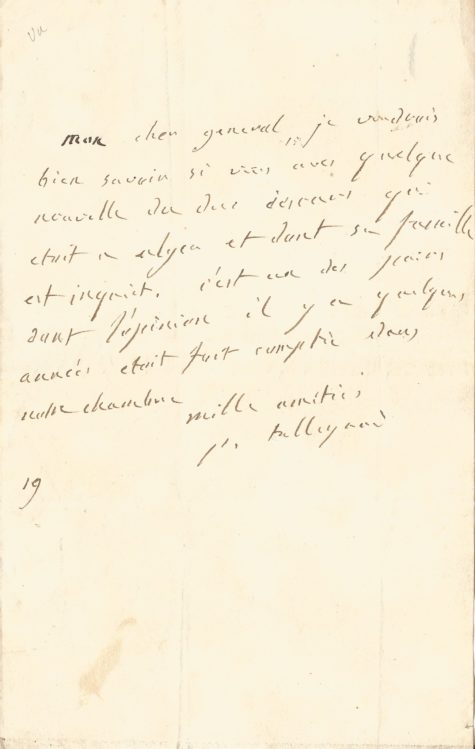 Vu
mon cher general, je voudrais
bien savoir si vous avez quelque
nouvelle du duc descars qui
etoit a alger et dont sa famille
est inquiete. c'est un des pairs
dont l'opinion il y a quelques
années etoit fort comptée dans
notre chambre
mille amitiés
p. talleyrand
19